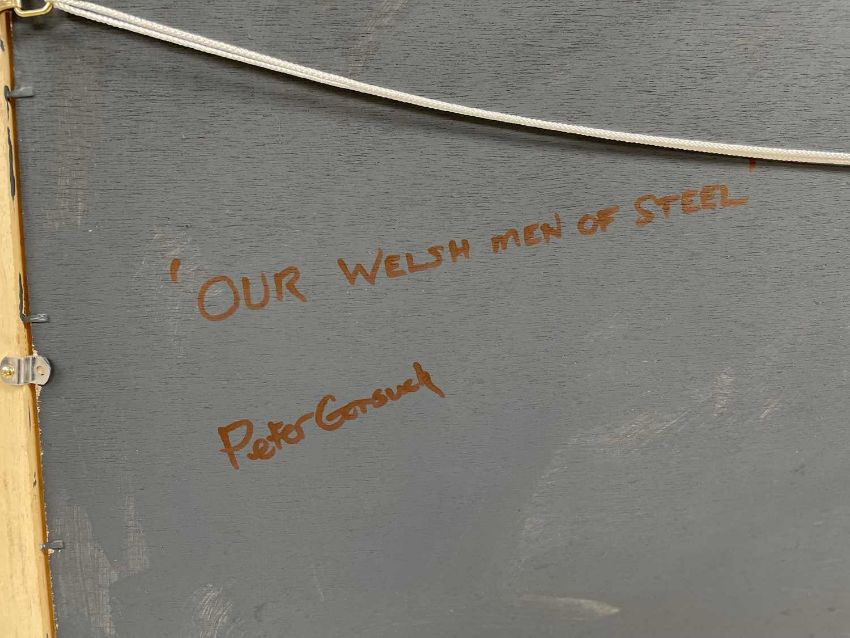 'OUR WELSH MEN OF STEEL'
Peter Gorsuch